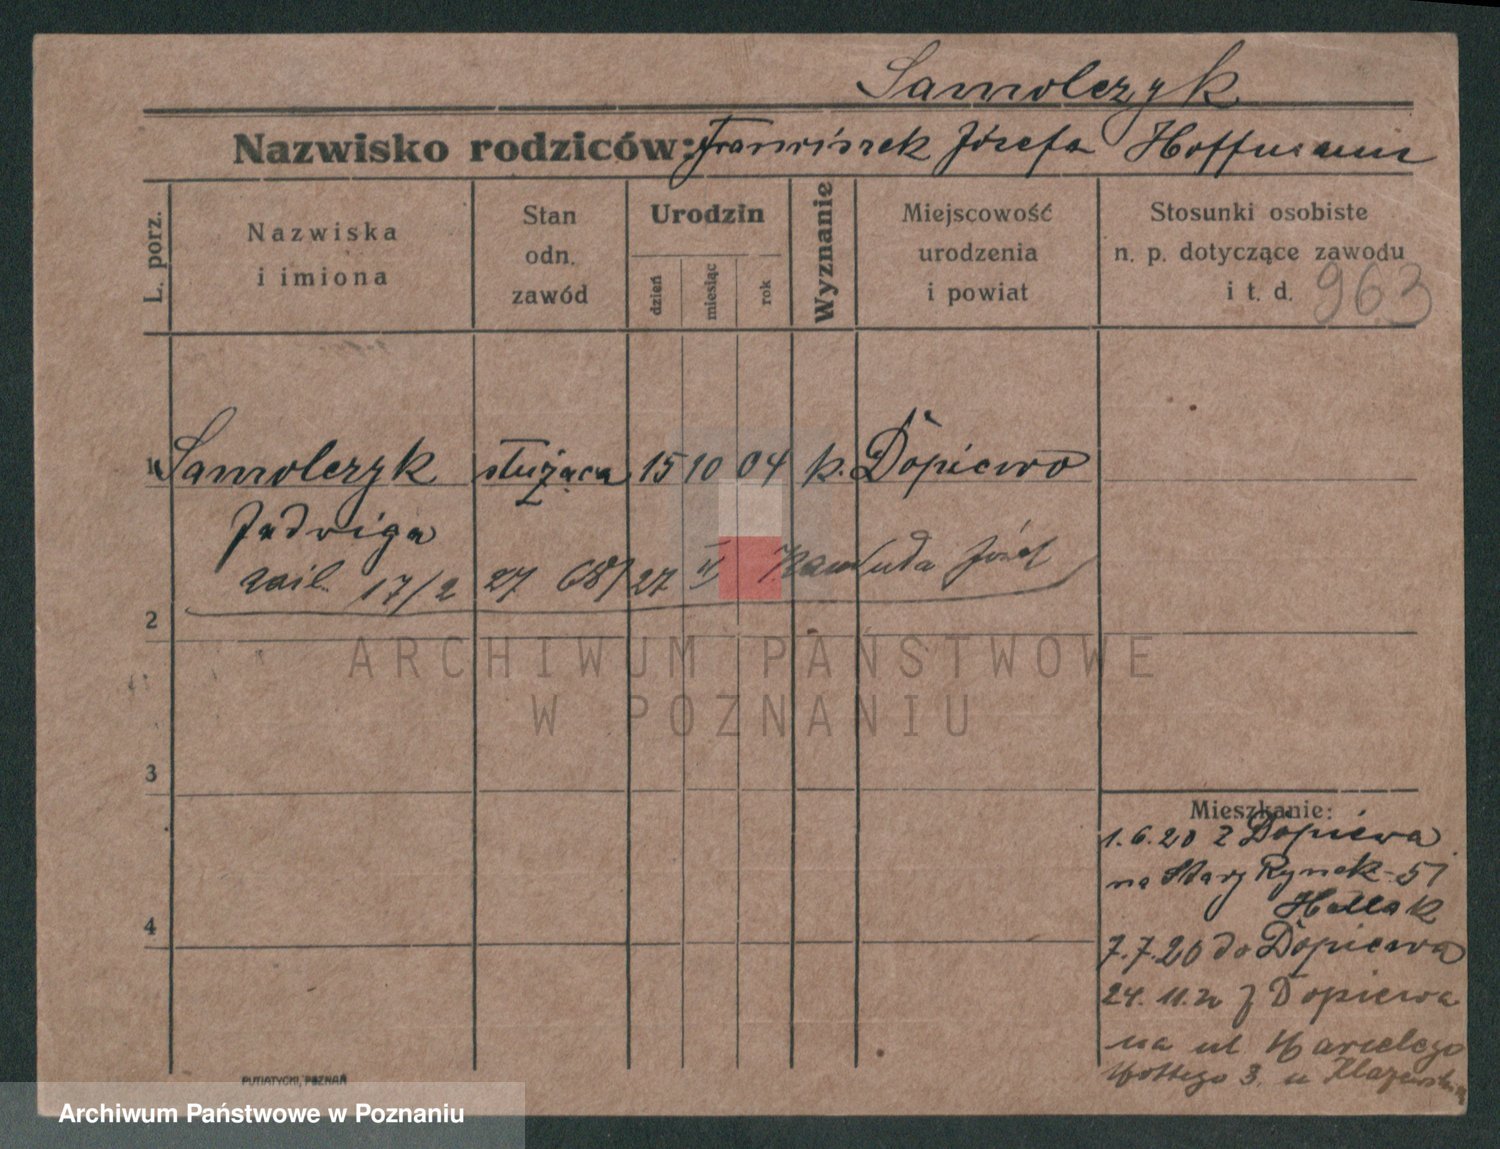 Samolczyk
Nazwisko rodziców: Franciszek Józefa Hoffmann
L. porz.
Nazwiska
i imiona
Stan
odn.
zawód
Urodzin
dzień
miesiąc
rok
Wyznanie
Miejscowość
urodzenia
i powiat
Stosunki osobiste
n. p. dotyczące zawodu
i t. d. 963
1 Samolczyk służąca 15 10 04 k. Dopiewo
Jadwiga
17/2 27 68/27 II Józef
2
ARCHIWUM PAŃSTWOWE
W POZNANIU
3
4
Mieszkanie:
1.6.20 z Dopiewa
na Stary Rynek 51
7.7.20 do Dopiewa
24.11.20 z Dopiewa
na ul
3. u
PUTIATYCKI, POZNAŃ
Archiwum Państwowe w Poznaniu